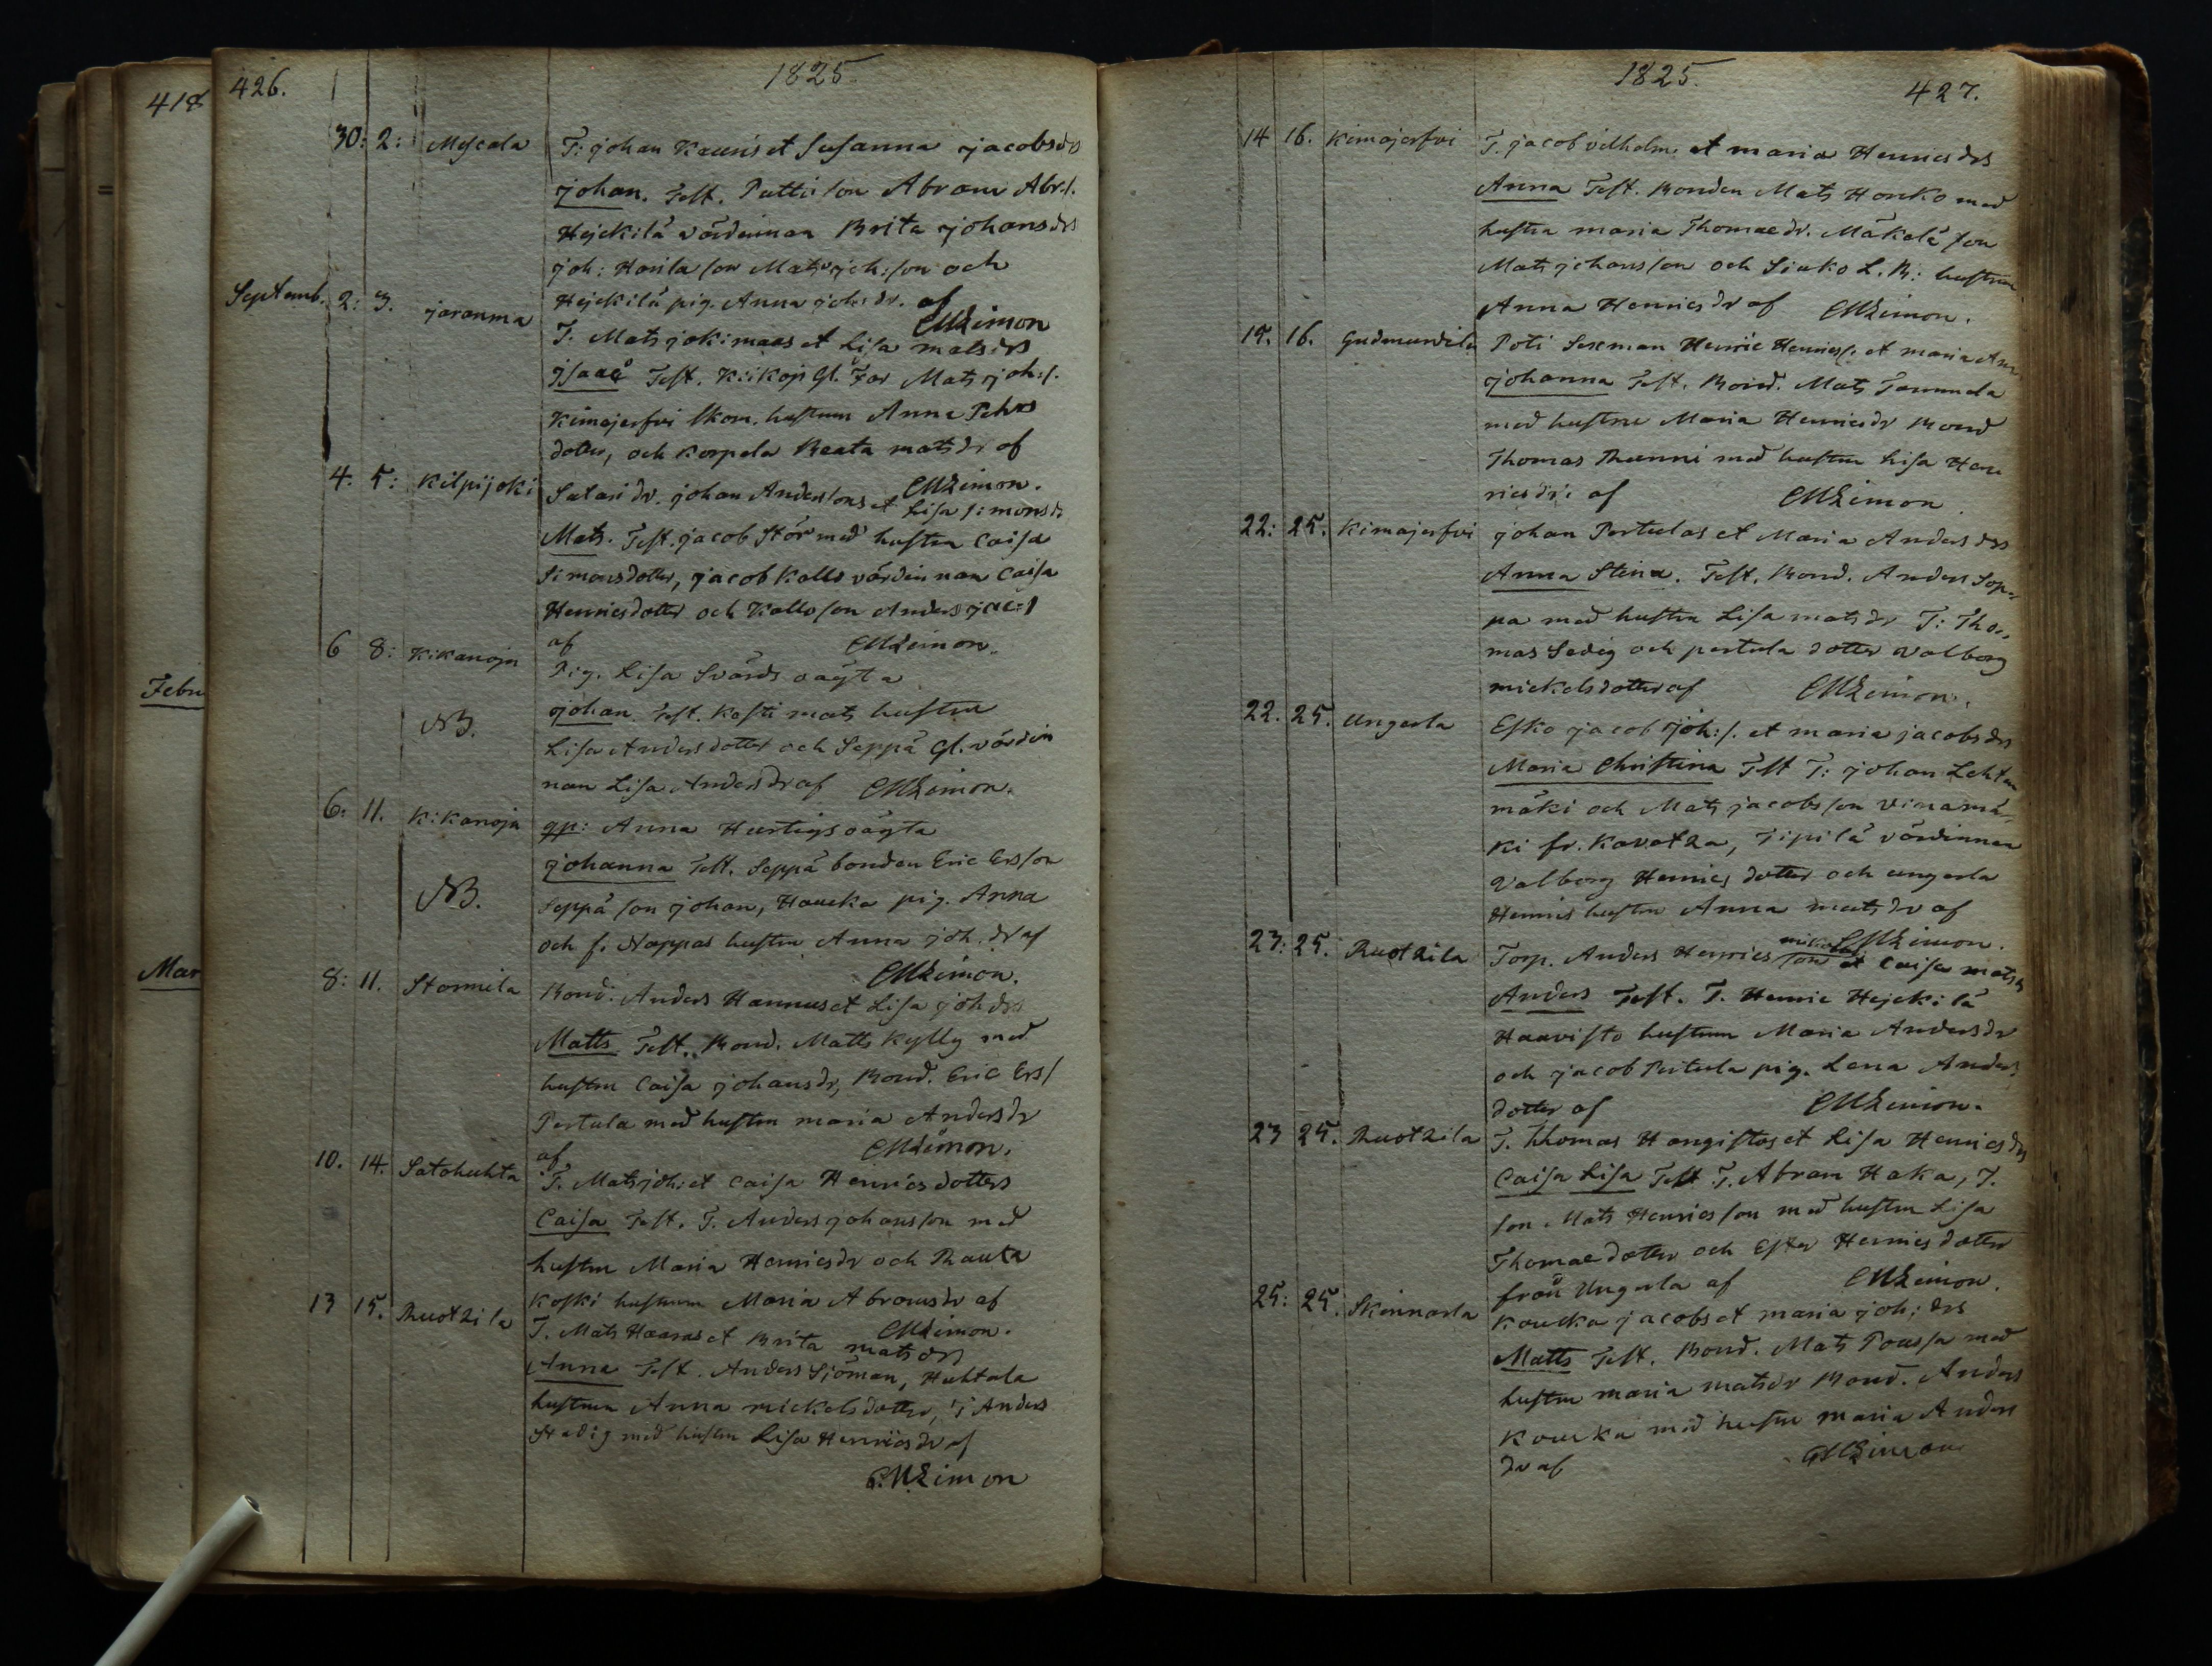 418
Febru
Mar
426.
1825
30: 2: Myscala T: johan Kauris et Susanna jacobsdrs
johan. Test. Putti son Abram Abr:s.
Hejckilä värdinnan Brita johansdr
joh: Harila son Mats joh:son och
Hejckilä pig. Anna johs dr. af
CMLimon
Septemb. 2: 3. jaranma T. Mats jokimaas et Lisa matsdrs
jsaac Test. Kiikoji Gl. Far Mats joh:s.
Kimajerfvi skom. hustrun Anna Pehrs
dotter, och Korpela Beata matsdr af
CMLimon.
4. 5: Kilpijoki johan Anderssons et Lisa simonsdr
Mats. Test. jacob Stör med hustru Caisa
Simonsdotter, jacob Kallo värdinnan Caisa
Henricsdotter och Kallo son Anders jac:s
af CMLimon.
6 8: Kikanoja Pig. Lisa Svärds oägta
NB. johan. Test. Kosti mats hustru
Lisa Andersdotter och Seppä Gl. värdin
nan Lisa Andersdr af CMLimon.
6: 11. Kikanoja qp: Anna Hurtigs oägta
johanna Test. Seppä bonden Eric Ersson
NB. Seppä son johan, Haucka pig. Anna
och s. Noppas hustru Anna joh. dr af
CMLimon.
8: 11. Stormila Bond. Anders Hannus et Lisa johdrs
Matts Test. Bond. Matts Kylly med
hustru Caisa johansdr, Bond. Eric Ers/
Pertula med hustru maria Andersdr
af CMLimon.
10. 14. Satokuhta T. Mats joh: et Caisa Henricsdotters
Caisa Test. T. Anders johansson med
hustru Maria Henricsdr och Rauta
koski hustrun Maria Abramsdr af
CMLimon.
13 15. Ruotzila T. Mats Haaras et Brita matsdrs
Anna Test. Anders Sjöman, Huhtala
hustrun Anna mickelsdotter, Anders
Stadig med hustru Lisa Henricsdr af
C.M.Limon
1825.
427.
14 16. Kimajerfvi T. jacob vilhelm. et maria Henricsdrs
Anna Test. Bonden Mats Honko med
hustru maria Thomaedr. Mäkelä son
Mats johansson och Siuko L. B: hustrun
Anna Henricsdr af CMLimon.
15. 16. Gudmundila Poti Sexman Henric Henrics/. et maria
johanna Test. Bond. Mats Tammela
med hustru Maria Henricsdr Bond
Thomas Runni med hustru Lisa Hen
ricsdr: af CMLimon
22: 25. Kimajerfvi johan Pertulas et Maria Andersdrs
Anna Stina. Test. Bond. Anders Sop-
pa med hustru Lisa matsdr T: Tho„
mas Sadig och pertula dotter Valborg
mickelsdotter af CMLimon.
22. 25. Ungarla Esko jacob joh:/. et maria jacobsdrs
Maria Christina Test T: johan Lehtin
mäki och Mats jacobsson Vinamä„
ki fr. Kavotza, Pipilä värdinnan
Valborg Henrics dotter och ungarla
Henrics hustru Anna matsdr af
CMLimon.
23: 25. Ruotzila Torp. Anders Henricsson et Caisa matsdrs
Anders Test. T. Henric Hejckilä
Haavisto hustrun Maria Andersdr
och jacob Pertula pig. Lena Anders
dotter af CMLimon.
23 25. Ruotzila T. Thomas Hangistos et Lisa Henricsdrs
Caisa Lisa Test T. Abram Haka, T.
son. Mats Henricsson med hustru Lisa
Thomaedotter och Ester Henricsdotter
från Ungarla af CMLimon.
25: 25. Skinnarla Koucka jacobs et maria joh: drs
Matts Test. Bond. Mats Poussa med
hustru maria matsdr Bond. Anders
Koucka med hustru maria Anders
dr af CMLimon